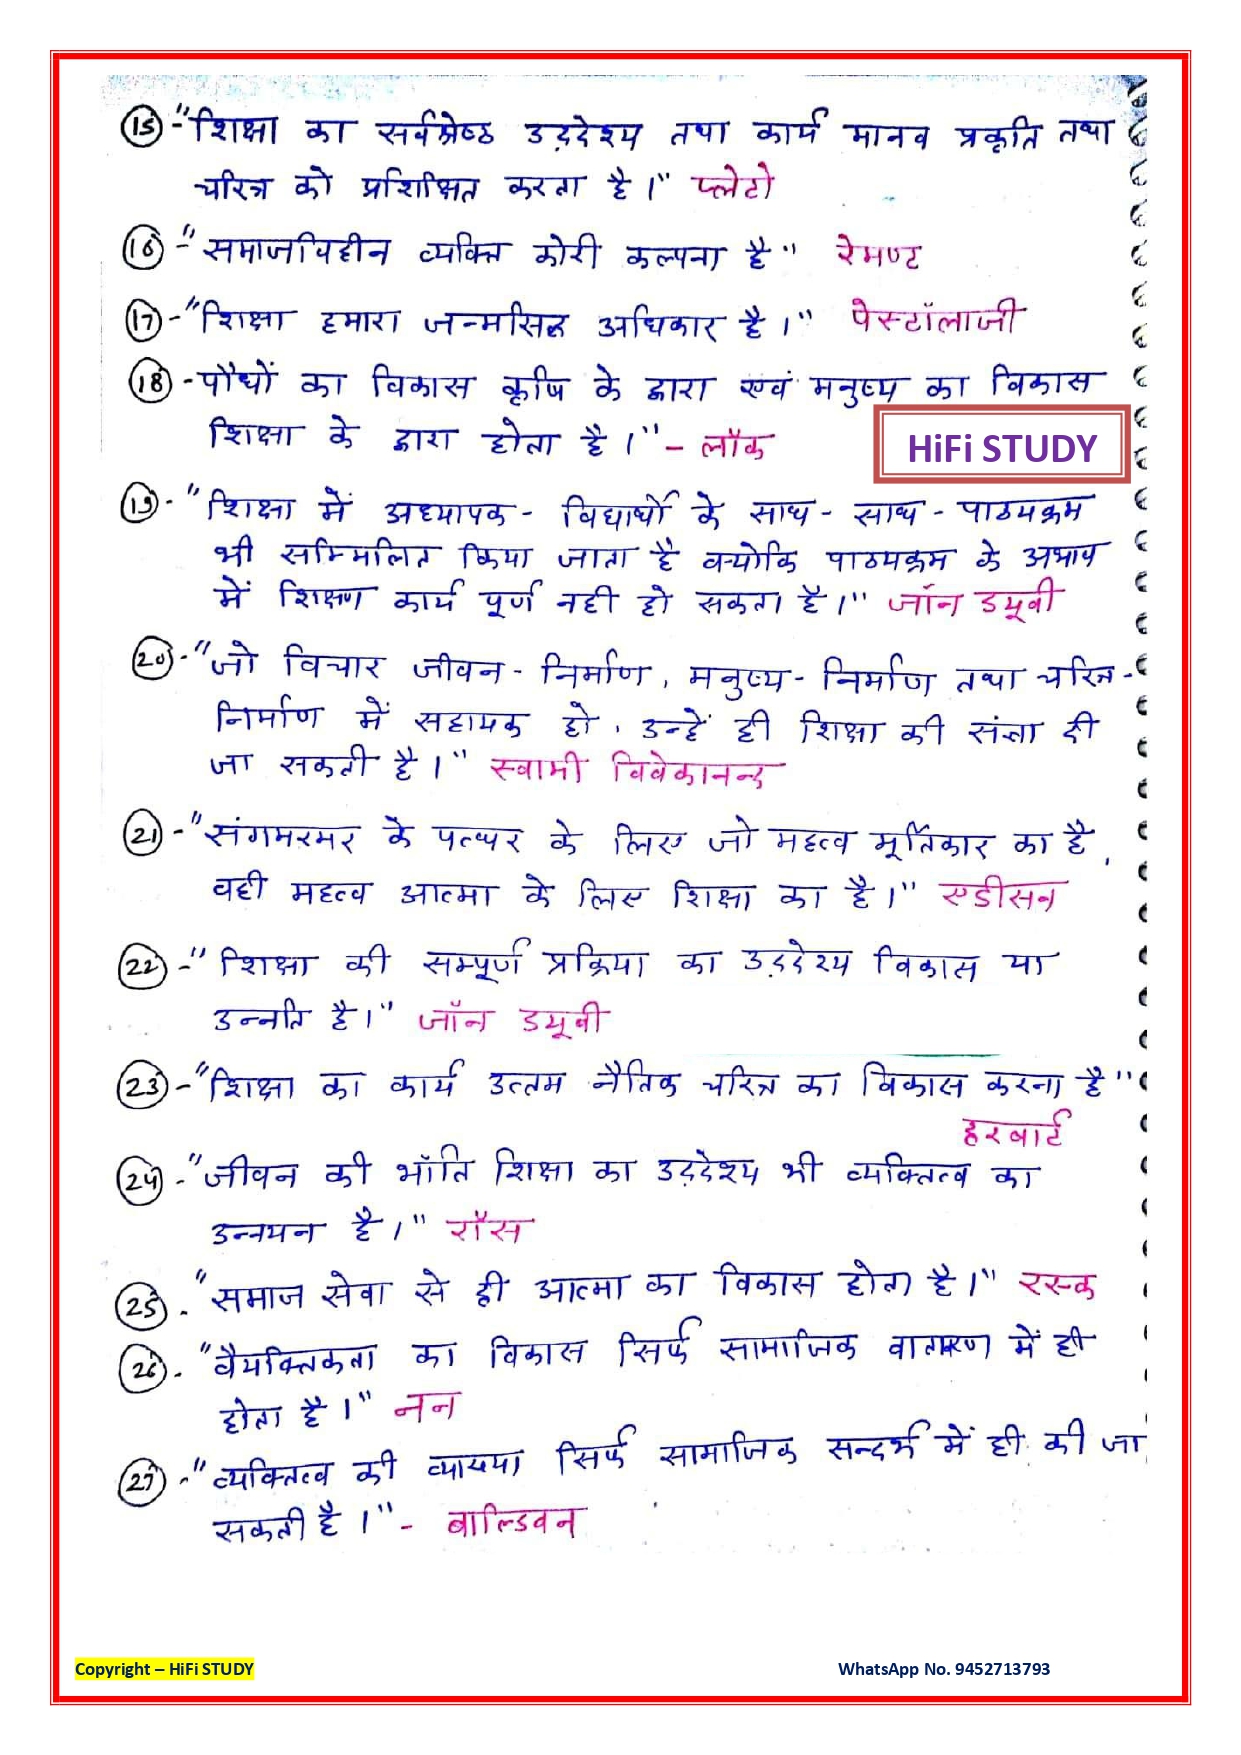 (15)-"शिक्षा का सर्वश्रेष्ठ उद्‌देश्य तथा कार्य मानव प्रकृति तथा
चरित्र को प्रशिक्षित करता है।" प्लेटो
(16)-"समाजविहीन व्यक्ति कोरी कल्पना है" रेमण्ट
(17)-"शिक्षा हमारा जन्मसिद्ध अधिकार है।" पेस्टॉलाजी
(18)-पौधों का विकास कृषि के द्वारा एवं मनुष्य का विकास
शिक्षा के द्वारा होता है।"- लॉक
HiFi STUDY
(19)-"शिक्षा में अध्यापक-विद्यार्थी के साथ-साथ-पाठ्यक्रम
भी सम्मिलित किया जाता है क्योकि पाठ्यक्रम के अभाव
में शिक्षण कार्य पूर्ण नही हो सकता है।" जॉन ड्यूवी
(20)-"जो विचार जीवन-निर्माण, मनुष्य-निर्माण तथा चरित्र-
निर्माण में सहायक हो, उन्हें ही शिक्षा की संज्ञा दी
जा सकती है।" स्वामी विवेकानन्द
(21)-"संगमरमर के पत्थर के लिए जो महत्व मूर्तिकार का है,
वही महत्व आत्मा के लिए शिक्षा का है।" एडीसन
(22)-"शिक्षा की सम्पूर्ण प्रक्रिया का उद्‌देश्य विकास या
उन्नति है।" जॉन ड्यूवी
(23)-"शिक्षा का कार्य उत्तम नैतिक चरित्र का विकास करना है"
हरबार्ट
(24)-"जीवन की भाँति शिक्षा का उद्‌देश्य भी व्यक्तित्व का
उन्नयन है।" रॉस
(25)."समाज सेवा से ही आत्मा का विकास होता है।" रस्क
(26)."वैयक्तिकता का विकास सिर्फ सामाजिक में ही
होता है।" नन
(27)-"व्यक्तित्व की व्याख्या सिर्फ सामाजिक सन्दर्भ में ही की जा
सकती है।"- बाल्डिवन
Copyright – HiFi STUDY
WhatsApp No. 9452713793